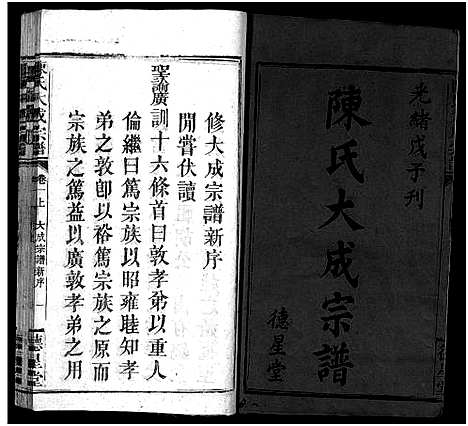 光緒戊子刊
陳氏大成宗譜
德星堂
修大成宗譜新序
聞嘗伏讀
聖諭廣訓十六條首曰敦孝弟以重人
倫繼曰篤宗族以昭雍睦知孝
弟之敦卽以裕篤宗族之原而
宗族之篤益以廣敦孝弟之用
陳氏大成宗譜
卷上
大成宗譜新序
一
德星堂